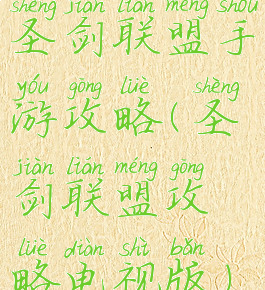 shèng jiàn lián méng shǒu
圣剑联盟手
yóu gōng lüè shèng
游攻略(圣
jiàn lián méng gōng
剑联盟攻
lüè diàn shì bǎn
略电视版)